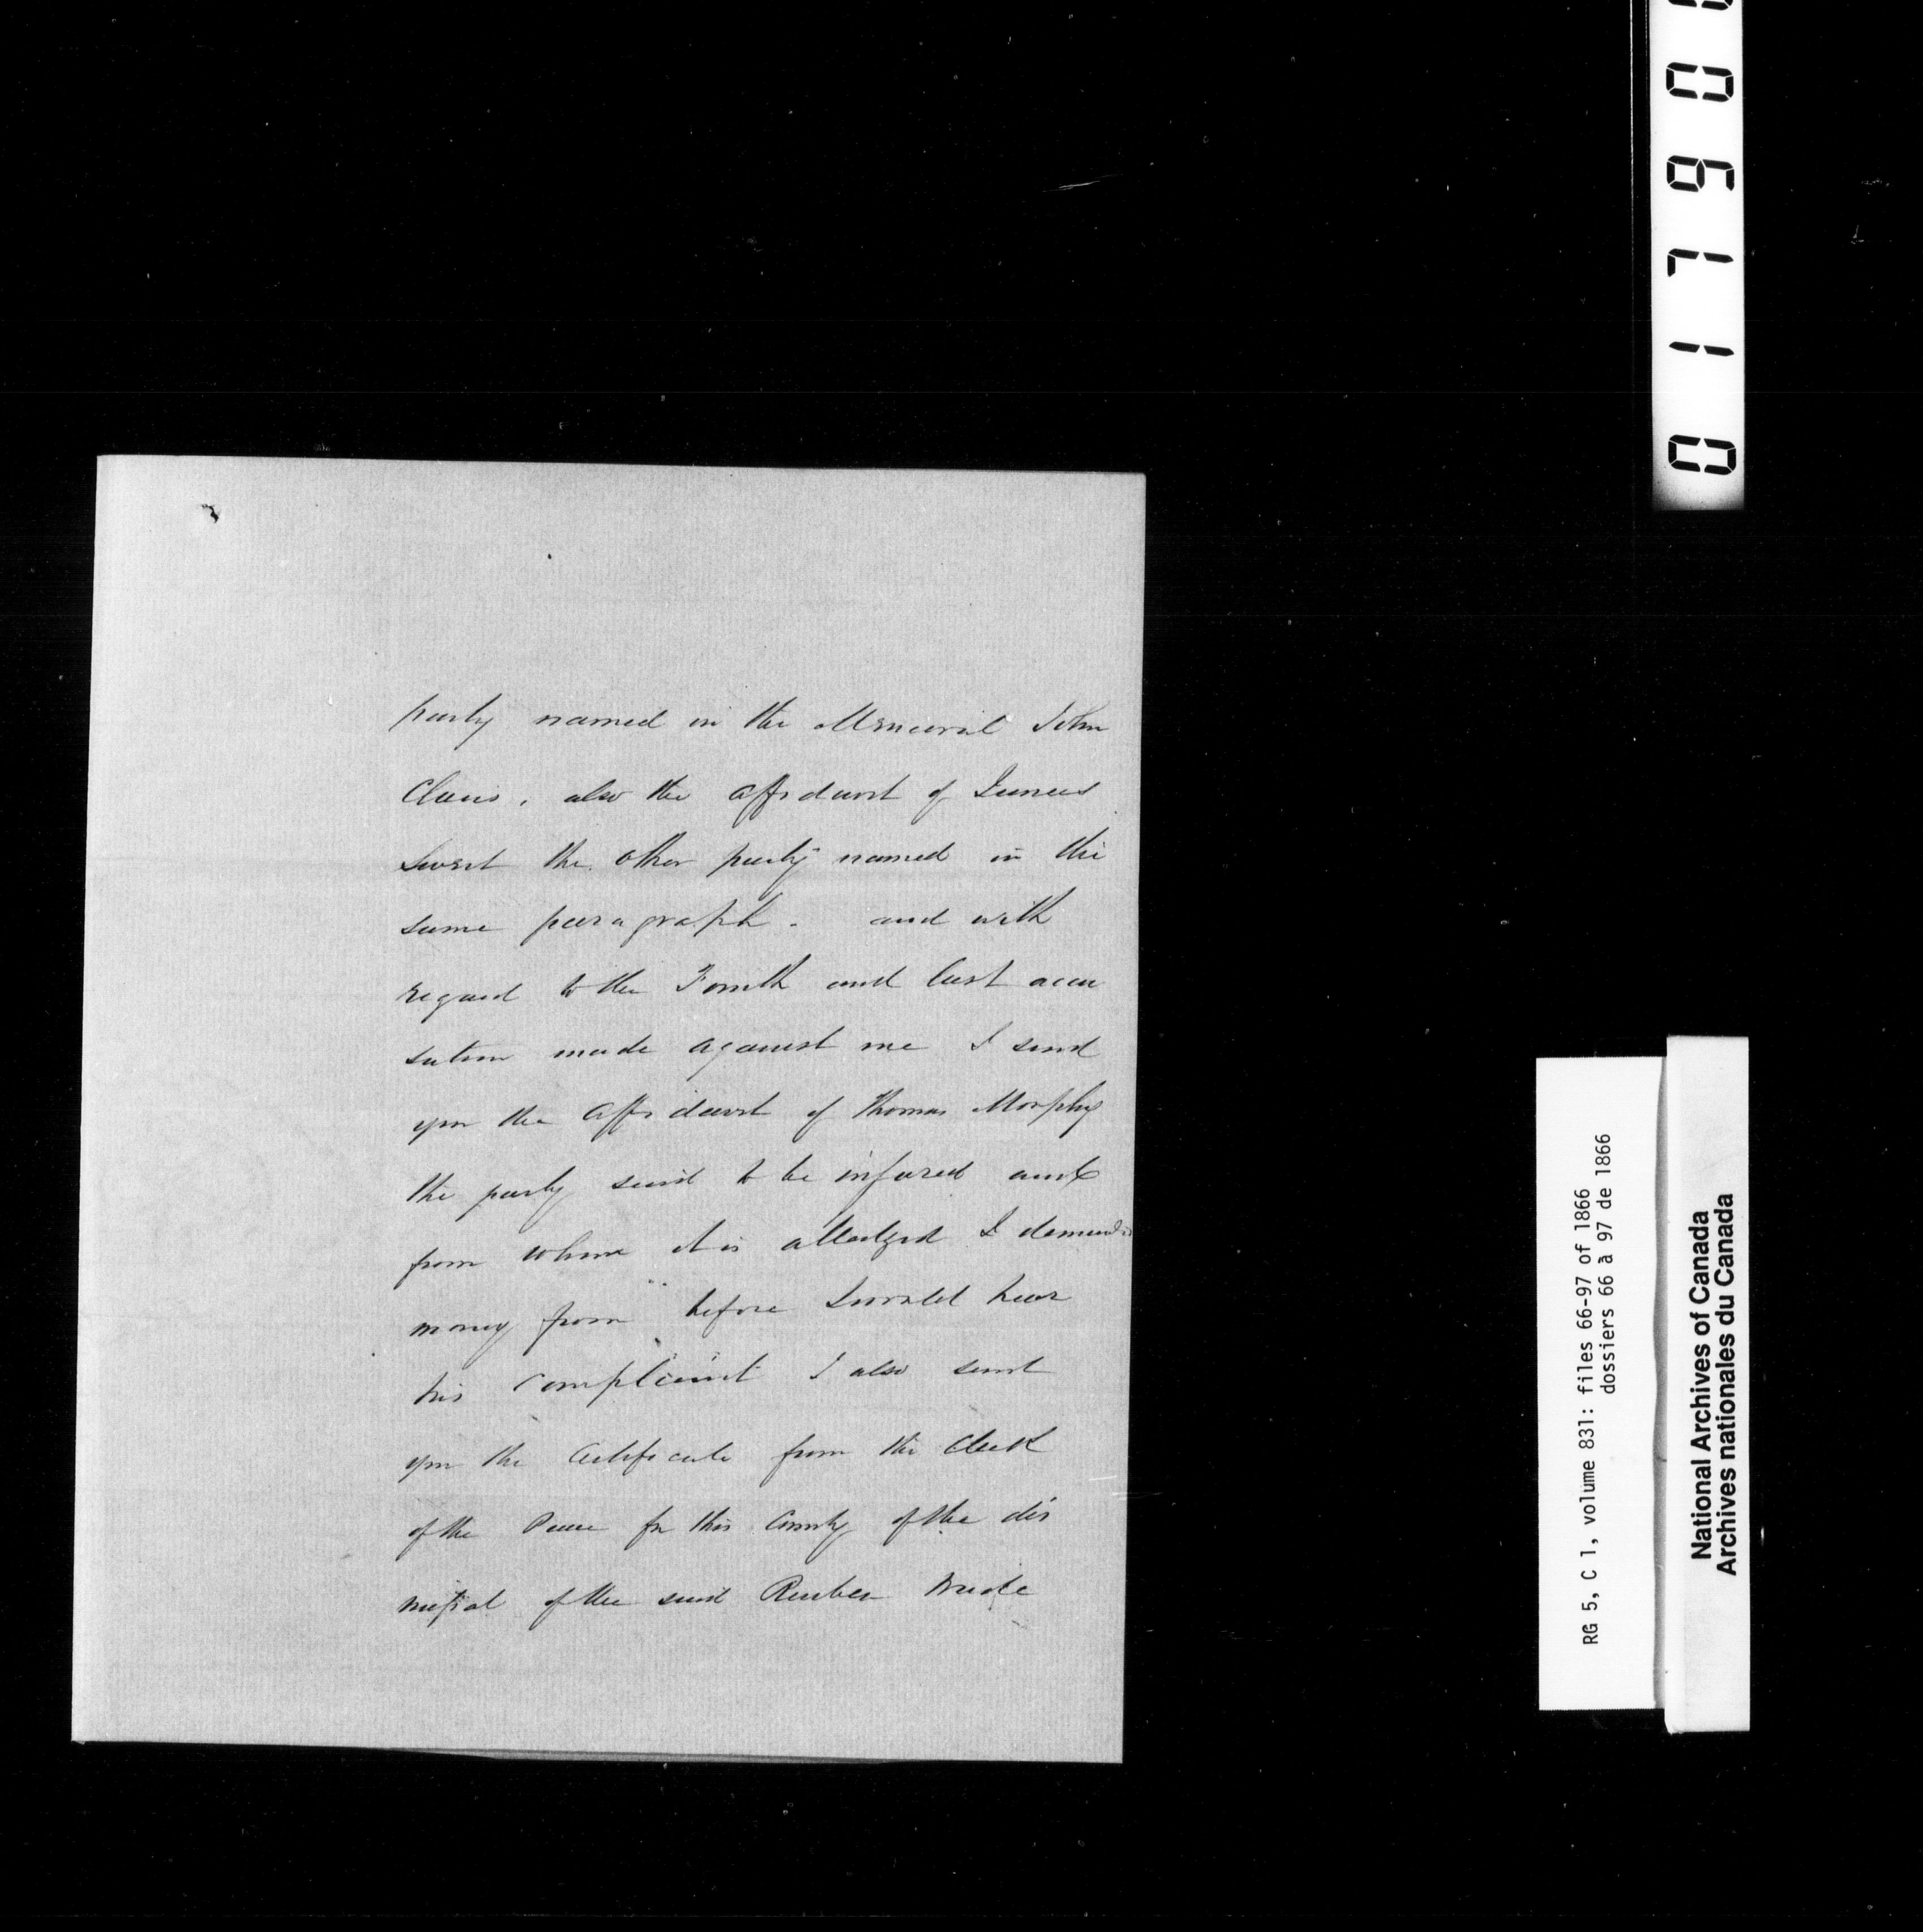 party named in the Memorial John
Claus, also the affidavit of James
Sweet the other party named in the
same paragraph. and with
regard to the Fourth and last accu
sation made against me I send
you the affidavit of Thomas Morphy
the party said to be injured and
from whom it is alledged I demanded
money from before I would hear
his complaint I also send
you the Certificate from the Clerk
of the Peace for this County of the dis
missal of the said Reuben Wade
RG 5, C 1, volume 831: files 66-97 of 1866
dossiers 66 à 97 de 1866
National Archives of Canada
Archives nationales du Canada